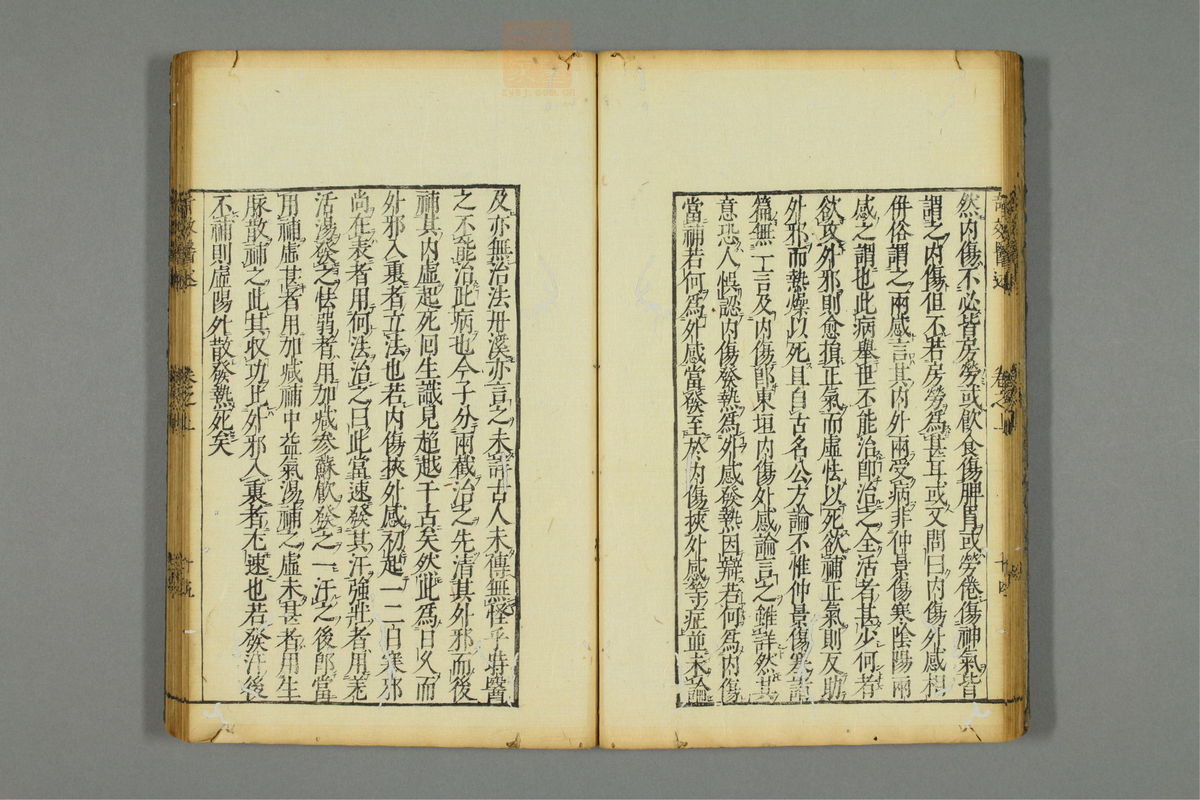 然内傷不必皆房勞或飲食傷脾胃或勞倦傷神氣皆
謂之内傷但不若房勞爲甚耳或又問曰内傷外感相
併俗謂之兩感言其内外兩受病非仲景傷寒陰陽兩
感之謂也此病舉世不能治卽治之全活者甚少何者
欲攻外邪則愈損正氣而虛怯以死欲補正氣則反助
外邪而熱燥以死且自古名公方論不惟仲景傷寒諸
篇無一言及内傷卽東垣内傷外感論言之雖詳然其
意恐人悞認内傷發熱爲外感發熱因辯若何爲内傷
當補若何爲外感當發至於内傷挾外感等症並未論
及亦無治法丹溪亦言之未詳古人未傳無怪乎時醫
之不能治此病也今子分兩截治之先清其外邪而後
補其内虛起死回生識見超越千古矣然此爲日久而
外邪入裏者立法也若内傷挾外感初起一二日寒邪
尚在表者用何法治之曰此當速發其汗強壯者用羌
活湯發之怯弱者用加減參蘇飲發之一汗之後卽當
用補虛甚者用加減補中益氣湯補之虛未甚者用生
脉散補之此其收功比外邪入裏者尤速也若發汗後
不補則虛陽外散發熱死矣